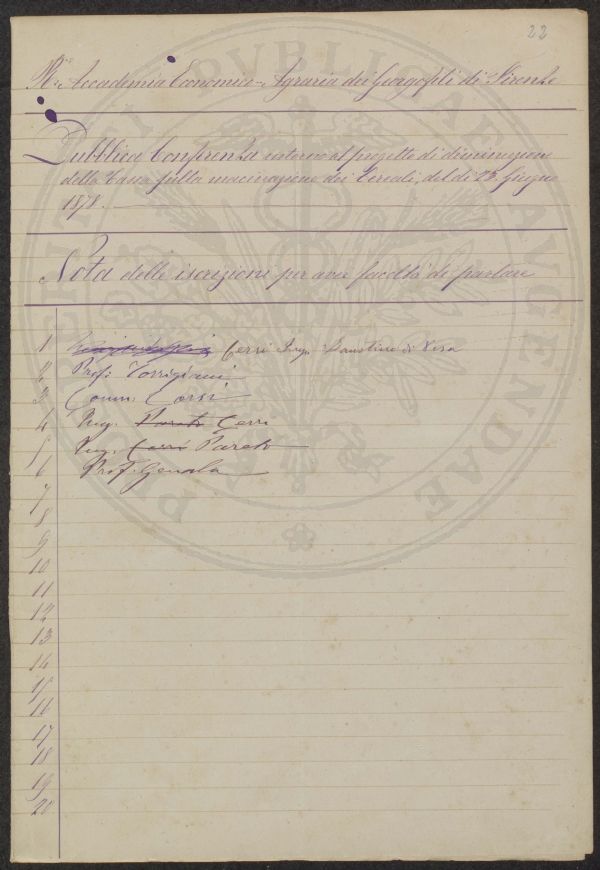 22
R. Accademia Economico-Agraria dei Georgofili di Firenze
Pubblica Conferenza intorno al progetto di diminuzione
della Tassa sulla macinazione dei Cereali, del dì 23 Giugno
1878.
Nota delle iscrizioni per aver facoltà di parlare
1 Cerri Ing. di Pisa
2 Prof. Torrigiani
3 Comm. Corsi
4 Ing. Pareto Cerri
5 Ing. Cerri Pareto
6 Prof. Genala
7
8
9
10
11
12
13
14
15
16
17
18
19
20
PROSPERITATI PVBLICAE AVGENDAE